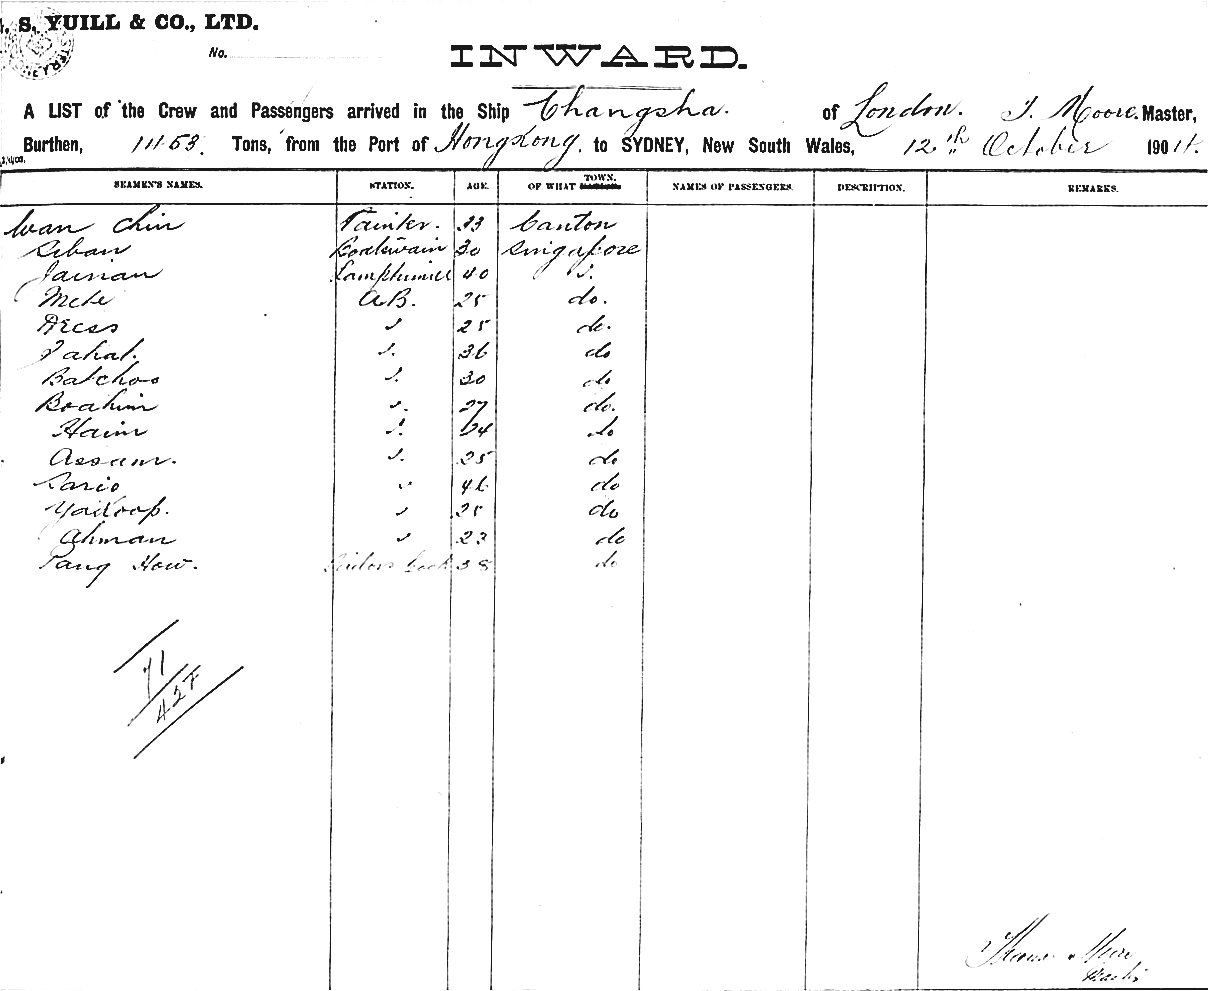 . S. YUILL & CO., LTD.
No.
INWARD.
A LIST of the Crew and Passengers arrived in the Ship Changsha. of London. T. Moore. Master,
Burthen, 1463. Tons, from the Port of Hong Kong. to SYDNEY, New South Wales, 12th October 1904.
SEAMEN'S NAMES. STATION. AGE. OF WHAT TOWN. NAMES OF PASSENGERS. DESCRIPTION. REMARKS.
Wan Chin Painter. 33 Canton
Seban Boatswain 30 Singapore
Jainan 40 ".
Mete A.B. 25 do.
Dress " 25 do.
Jahal. ". 36 do
Batchoo ". 30 do
Boahim ". 27 do.
Haim ". 24 do
Assam. ". 25 do
Sario " 46 do
Yakoop. " 25 do
Ahman " 23 do
Tang How. Sailors Cook 38 do
71
427
Moore
Master